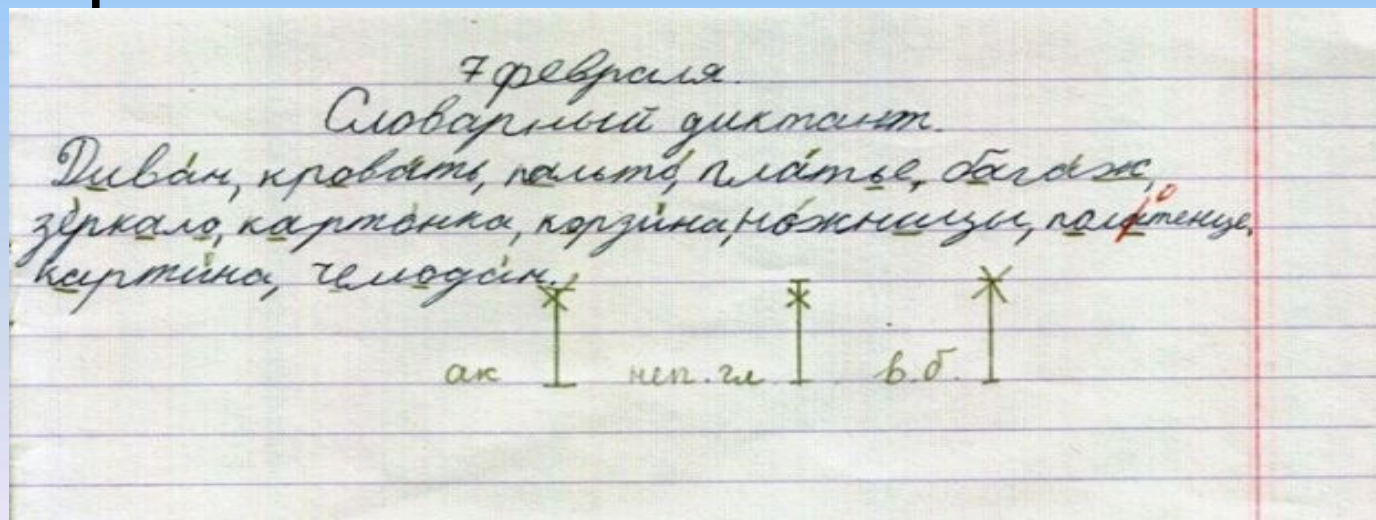 7 февраля.
Словарный диктант.
Дива́н, крова́ть, пальто́, пла́тье, бага́ж,
зе́ркало, карто́нка, корзи́на, но́жницы, полатенце,
карти́на, чемода́н.
ак неп. гл в. б.